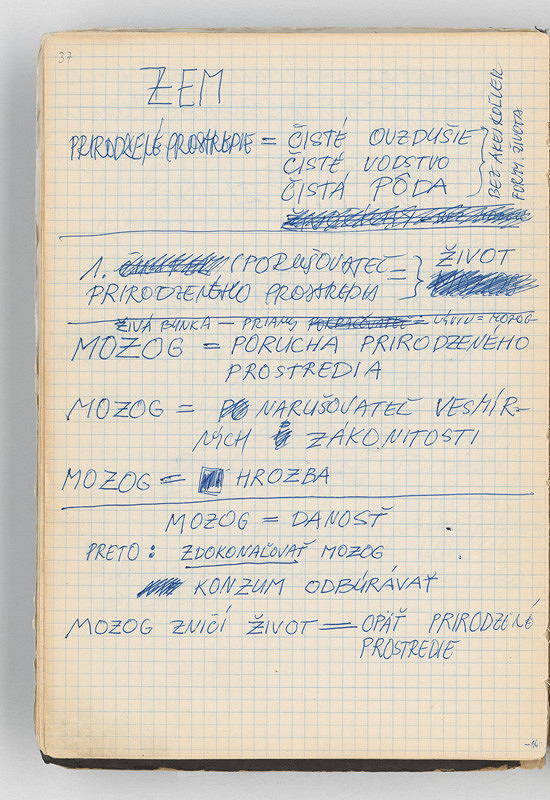 37
ZEM
PRIRODZENÉ PROSTREDIE = ČISTÉ OVZDUŠIE
ČISTÉ VODSTVO
ČISTÁ PÔDA
BEZ AKEJKOĽVEK
FORMY ŽIVOTA
1. (PORUŠOVATEĽ = ŽIVOT
PRIRODZENÉHO PROSTREDIA
ŽIVÁ BUNKA – PRIAMY POKRAČOVATEĽ = VÝVIN = MOZOG
MOZOG = PORUCHA PRIRODZENÉHO
PROSTREDIA
MOZOG = NARUŠOVATEĽ VESMÍR-
NYCH ZÁKONITOSTI
MOZOG = HROZBA
MOZOG = DANOSŤ
PRETO: ZDOKONAĽOVAŤ MOZOG
KONZUM ODBÚRÁVAŤ
MOZOG ZNIČÍ ŽIVOT = OPÄŤ PRIRODZENÉ
PROSTREDIE